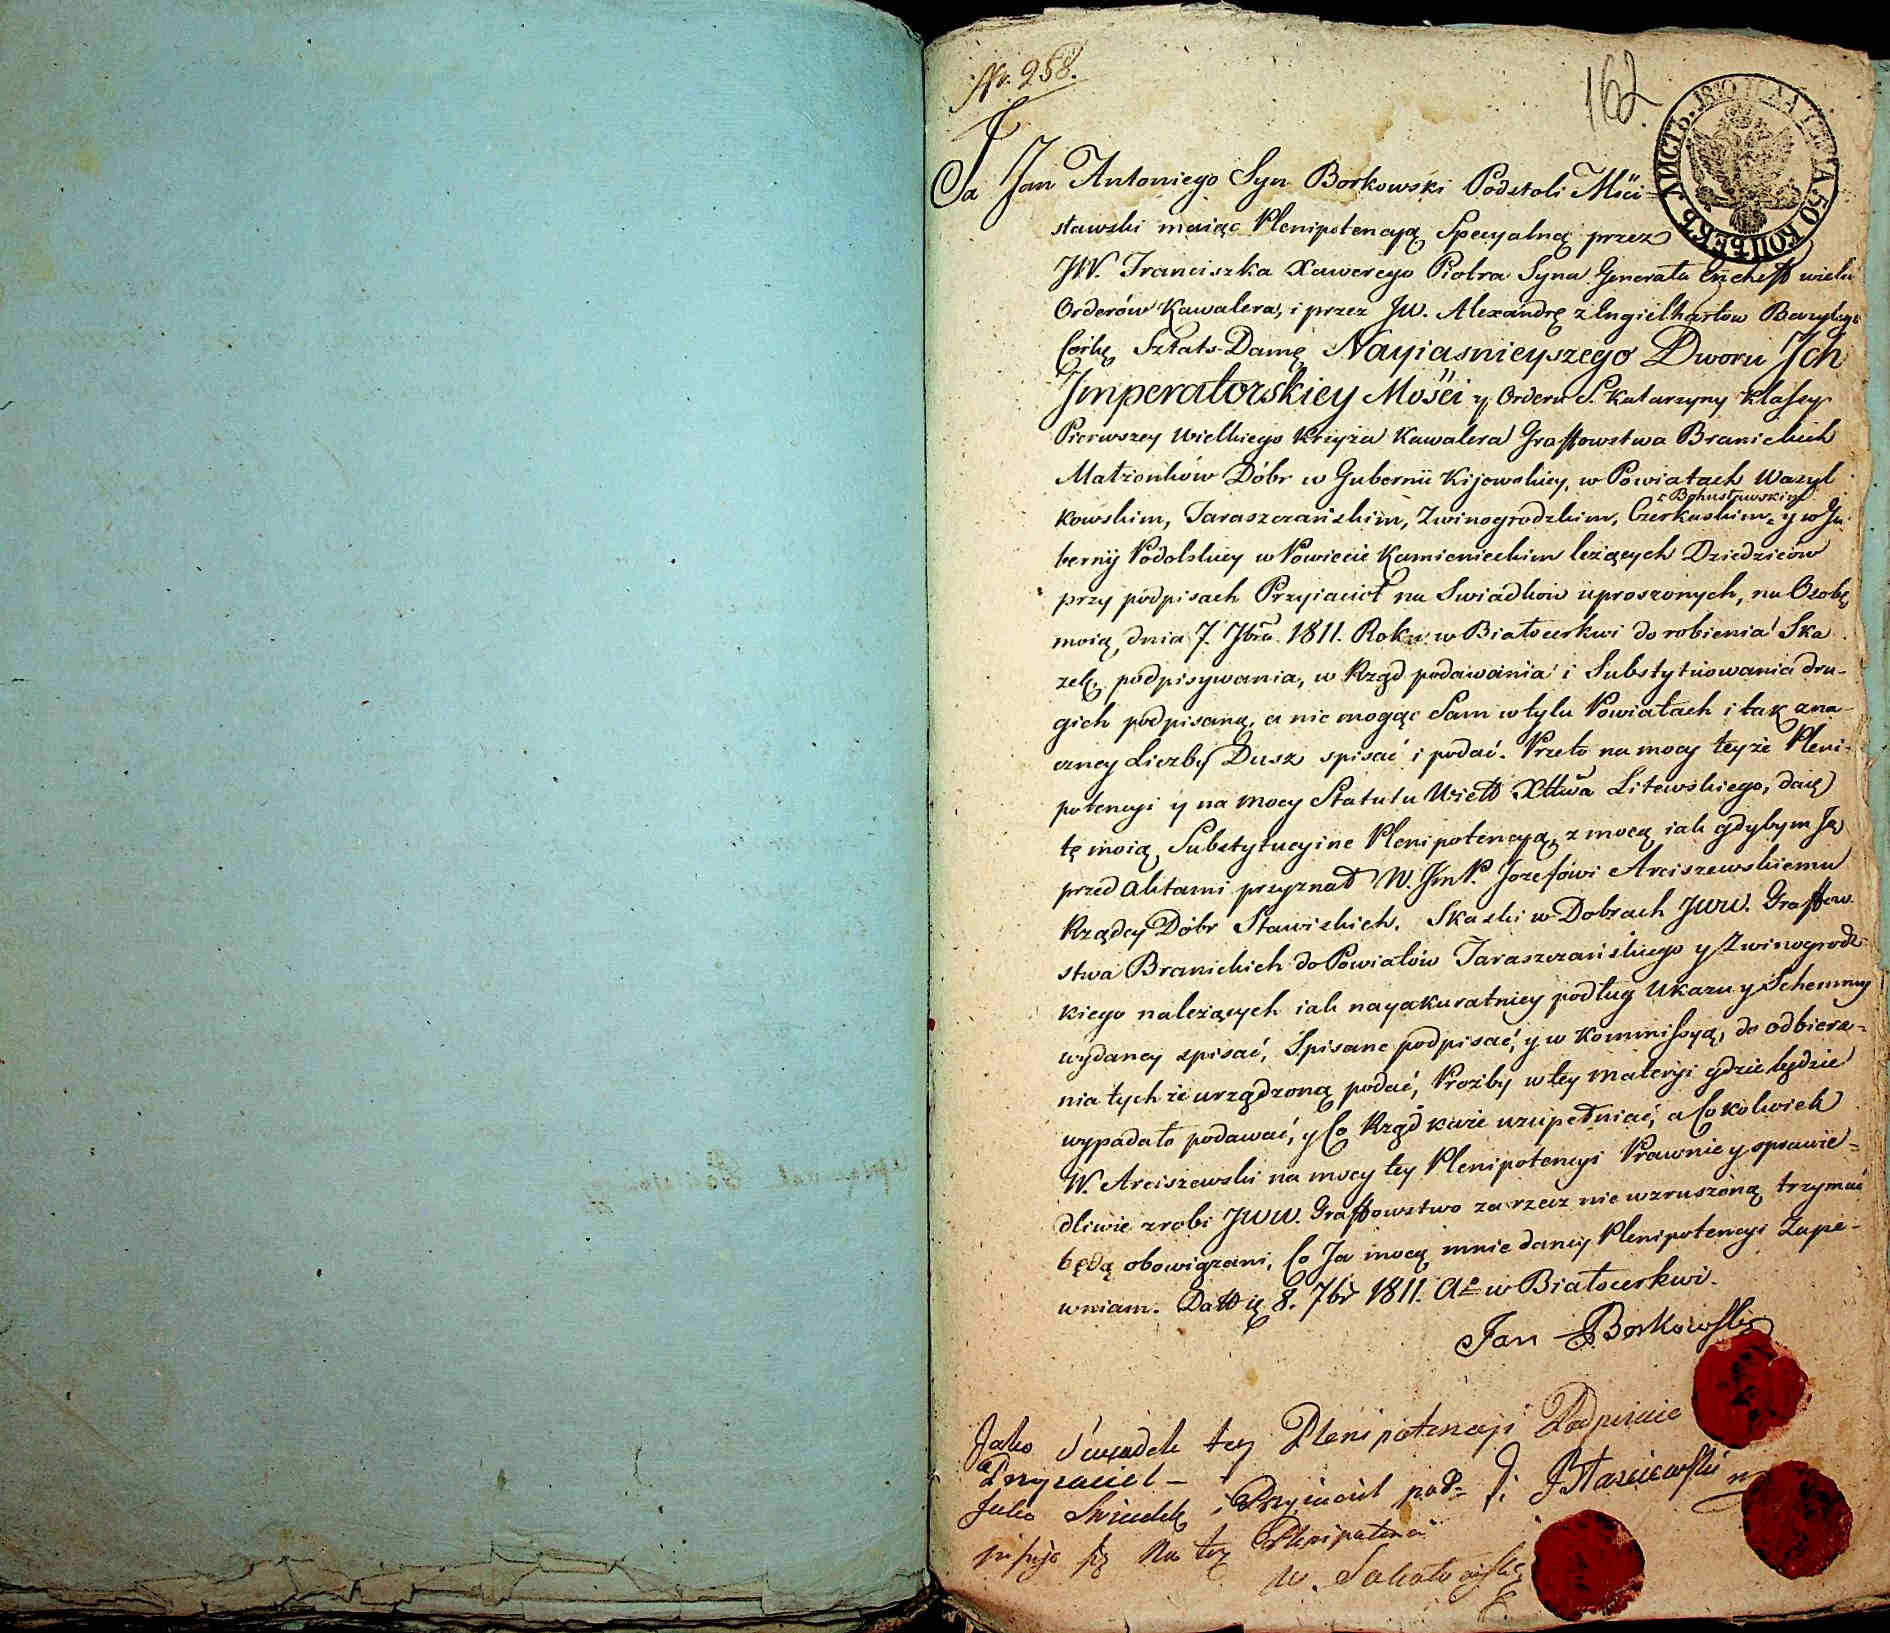 Nr. 258.
162.
ЛИСТЪ. 1810 ГОДА ЦѢНА 50 КОПѢЕКЪ.
Ja Jan Antoniego Syn Borkowski Podstoli Mści-
sławski maiąc Plenipotencyą Specyalną przez
JW. Franciszka Xawerego Piotra Syna Generała Encheff wielu
Orderów Kawalera, i przez JW. Alexandrę z Engielhartow Bazylego
Corkę Sztats-Damę Nayiasnieyszego Dworu Ich
Imperatorskiey Mości y Orderu S. Katarzyny Klassy
Pierwszey Wielkiego Krzyża Kawalera Graffowstwa Branickich
Małżonków Dóbr w Gubernii Kijowskiey, w Powiatach Wasyl
kowskim, Taraszczańskim, Zwinogrodzkim, Czerkaskim = y w Gu
z Bohusławskim
bernij Podolskiey w Powiecie Kamienieckim leżących Dziedziców
przy podpisach Przyiacioł na Swiadkow uproszonych, na Osobę
moią, dnia 7. 7bra 1811. Roku w Białocerkwi do robienia Ska
zek, podpisywania, w Rząd podawania i Substytuowania dru-
gich podpisaną, a nie mogąc Sam w tylu Powiatach i tak zna-
czney Liczby Dusz spisać i podać. Przeto na mocy teyże Pleni-
potencyi y na mocy Statutu Wiell Xttwa Litewskiego, daię
tę moią Substytucyine Plenipotencyą, z mocą iak gdybym Ją
przed Aktami przyznał W. JmP. Jozefowi Arciszewskiemu
Rządcy Dóbr Stawiskich. Skaski w Dobrach JWW. Graffow-
stwa Branickich do Powiatów Taraszczańskiego y Zwinogrodz-
kiego należących iak nayakuratniey podług Ukazu y Schemmy
wydaney spisać, Spisane podpisać, y w Kommissyą, do odbiera-
nia tych że urządzoną podać, Prozby w tey materyi gdzie będzie
wypadało podawać, y Co Rząd każe uzupełniać, a Cokolwiek
W. Arciszewski na mocy tey Plenipotencyi Prawnie y sprawie-
dliwie zrobi JWW. Graffowstwo za rzecz nie wzruszoną trzymać
będą obowiązani, Co Ja mocą mnie daney Plenipotencyi Zape-
wniam. Datt ię 8. 7br 1811. Ao w Białocerkwi.
Jan Borkowski
Jako Swiadek tey Plenipotencyi Podpisuie
Przyiaciel -
Jako Swiadek i Przyiaciel pod=
pisuję się Na tę Plenipotencią